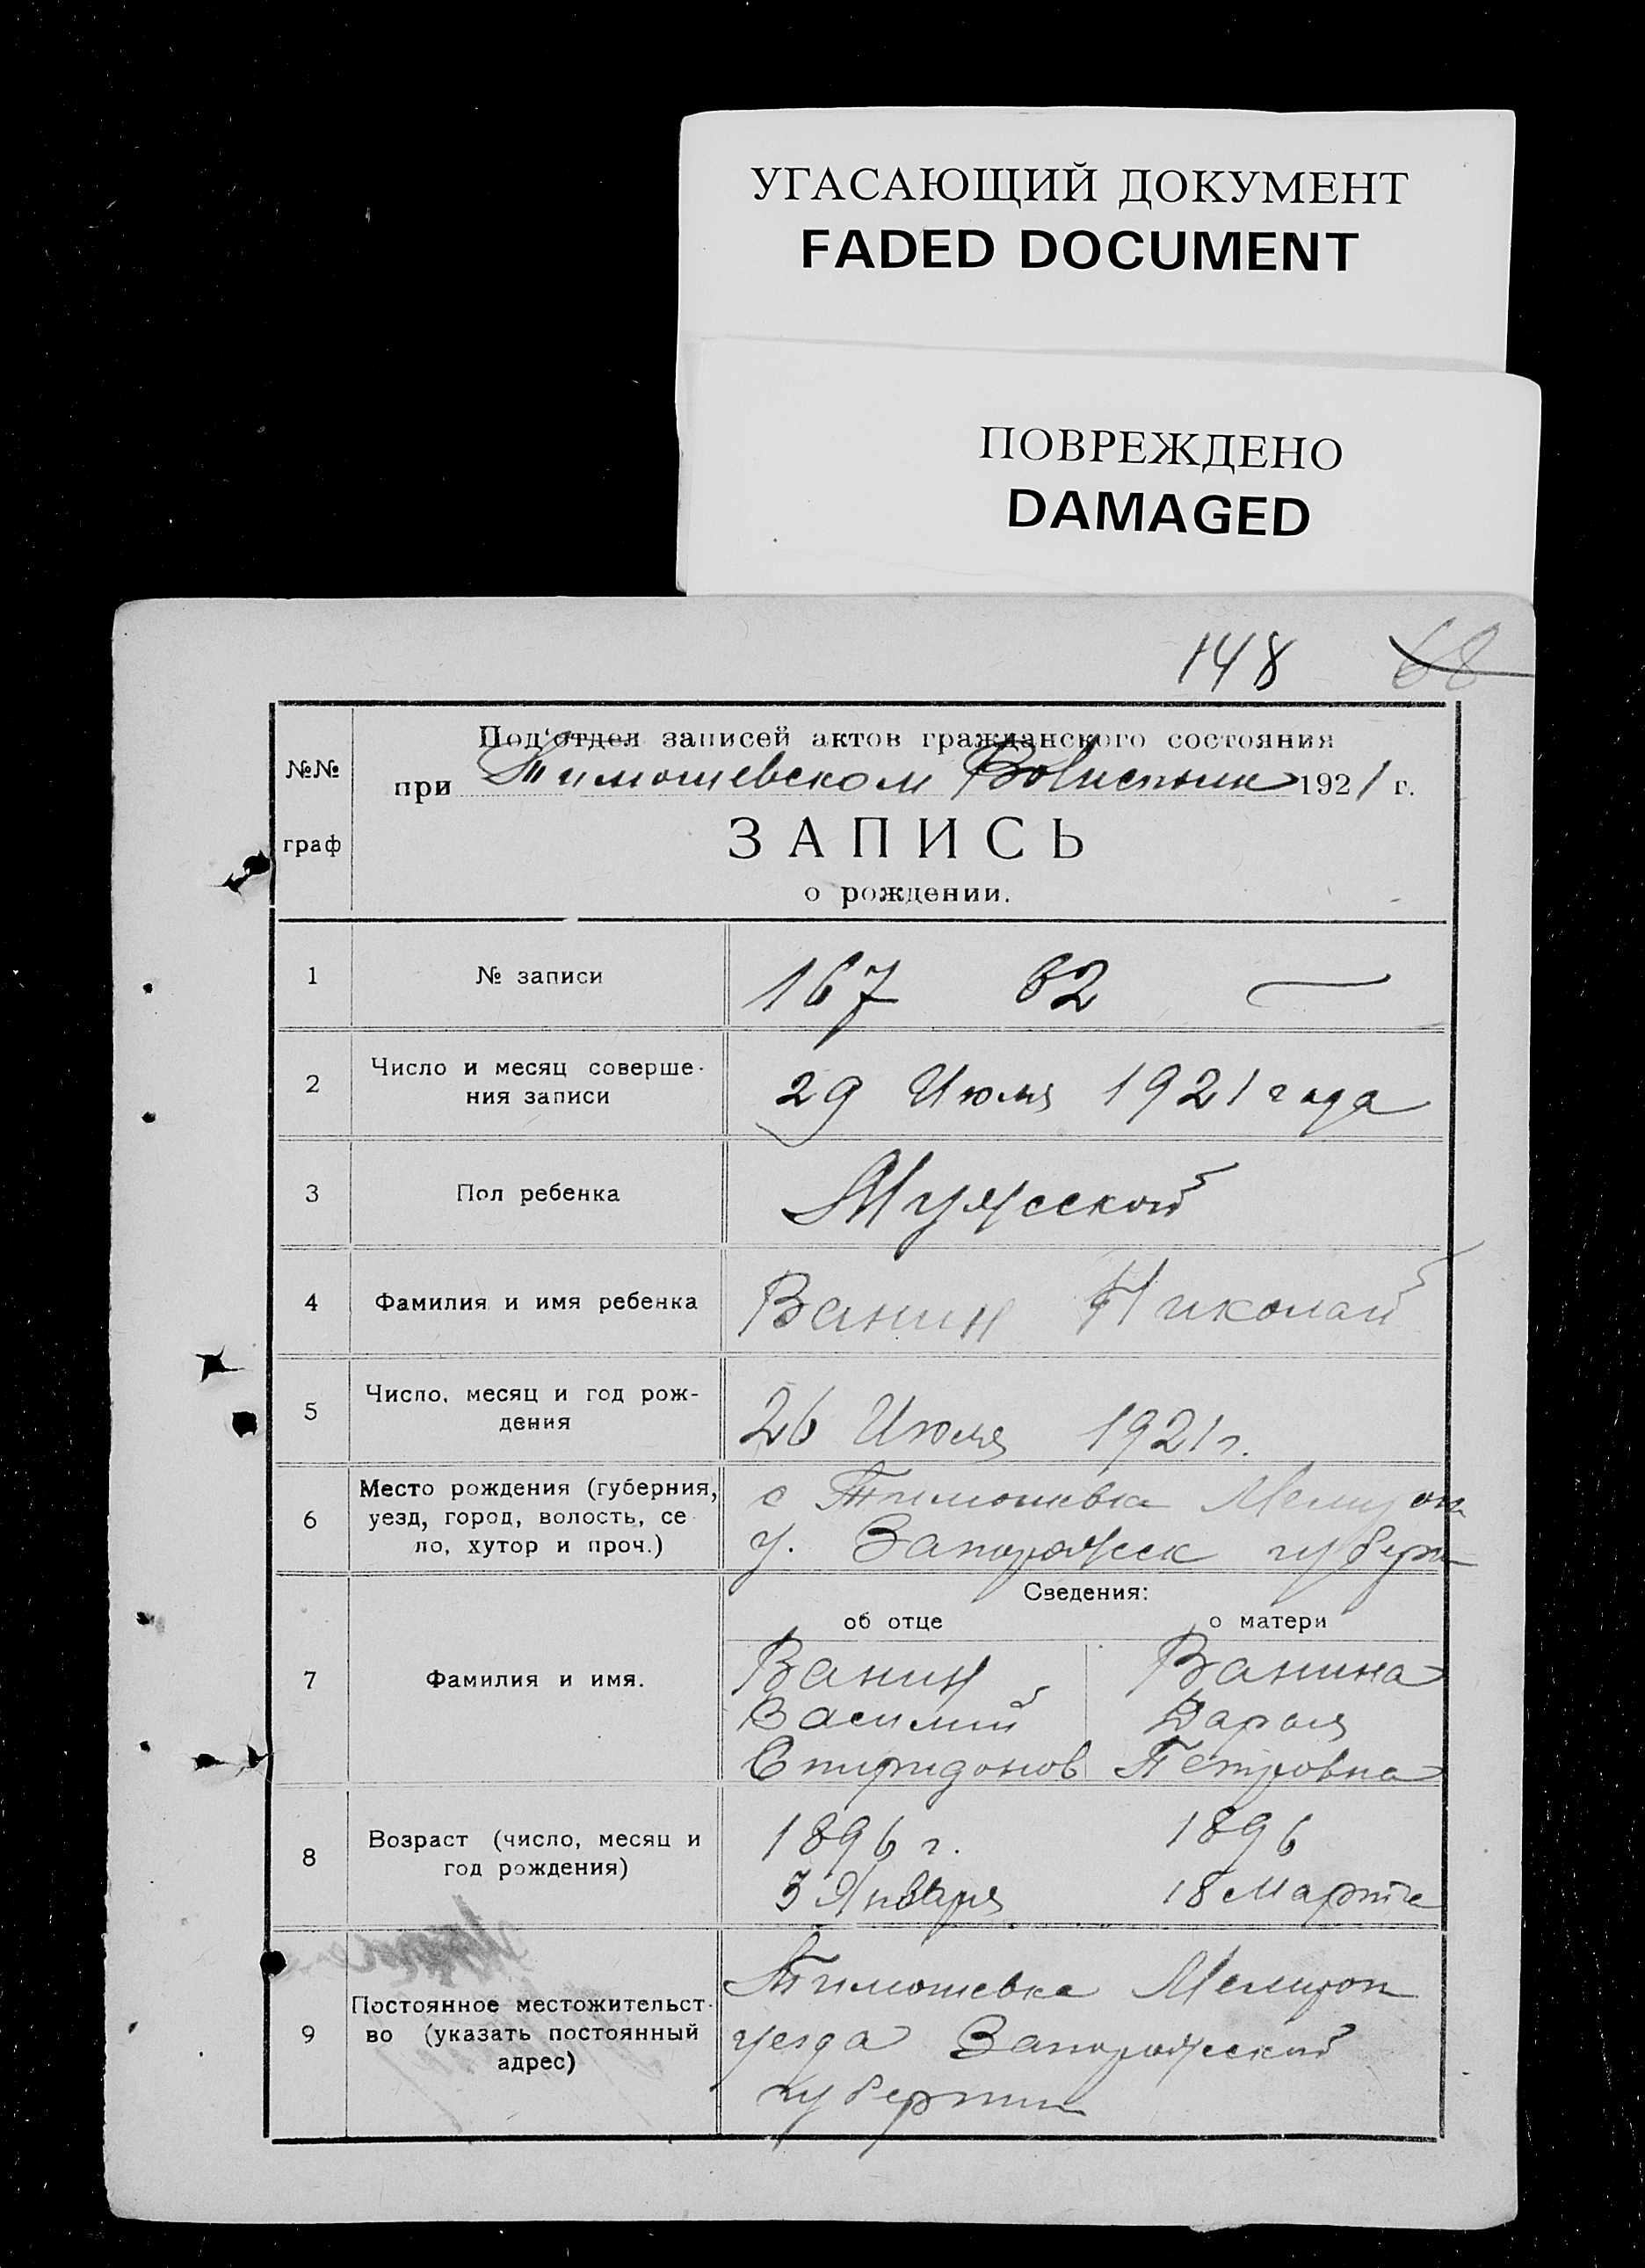 УГАСАЮЩИЙ ДОКУМЕНТ
FADED DOCUMENT
ПОВРЕЖДЕНО
DAMAGED
148 68
№№ граф
Под'отдел записей актов гражданского состояния
при Тимошевском Волисполк 1921 г.
ЗАПИСЬ
о рождении.
1 № записи 167 62
2 Число и месяц соверше-
ния записи 29 Июля 1921 года
3 Пол ребенка Мужеской
4 Фамилия и имя ребенка Ванин Николай
5 Число, месяц и год рож-
дения 26 Июля 1921 г.
6 Место рождения (губерния,
уезд, город, волость, се
ло, хутор и проч.)
с Тимошевка Мелитоп
у. Запорожск губерн
Сведения:
об отце о матери
7 Фамилия и имя.
Ванин Ванина
Василий Дарья
Спиридонов Петровна
8 Возраст (число, месяц и
год рождения)
1896 г. 1896
3 Января 18 Марта
9 Постоянное местожительст-
во (указать постоянный
адрес)
Тимошевка Мелитоп
уезда Запорожской
губернии